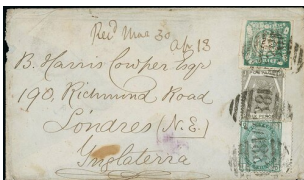 Rec^d Mar 30
Ap 13
B. Harris Cowper Esq^r
190, Richmond Road
Londres (N.E.)
Inglaterra